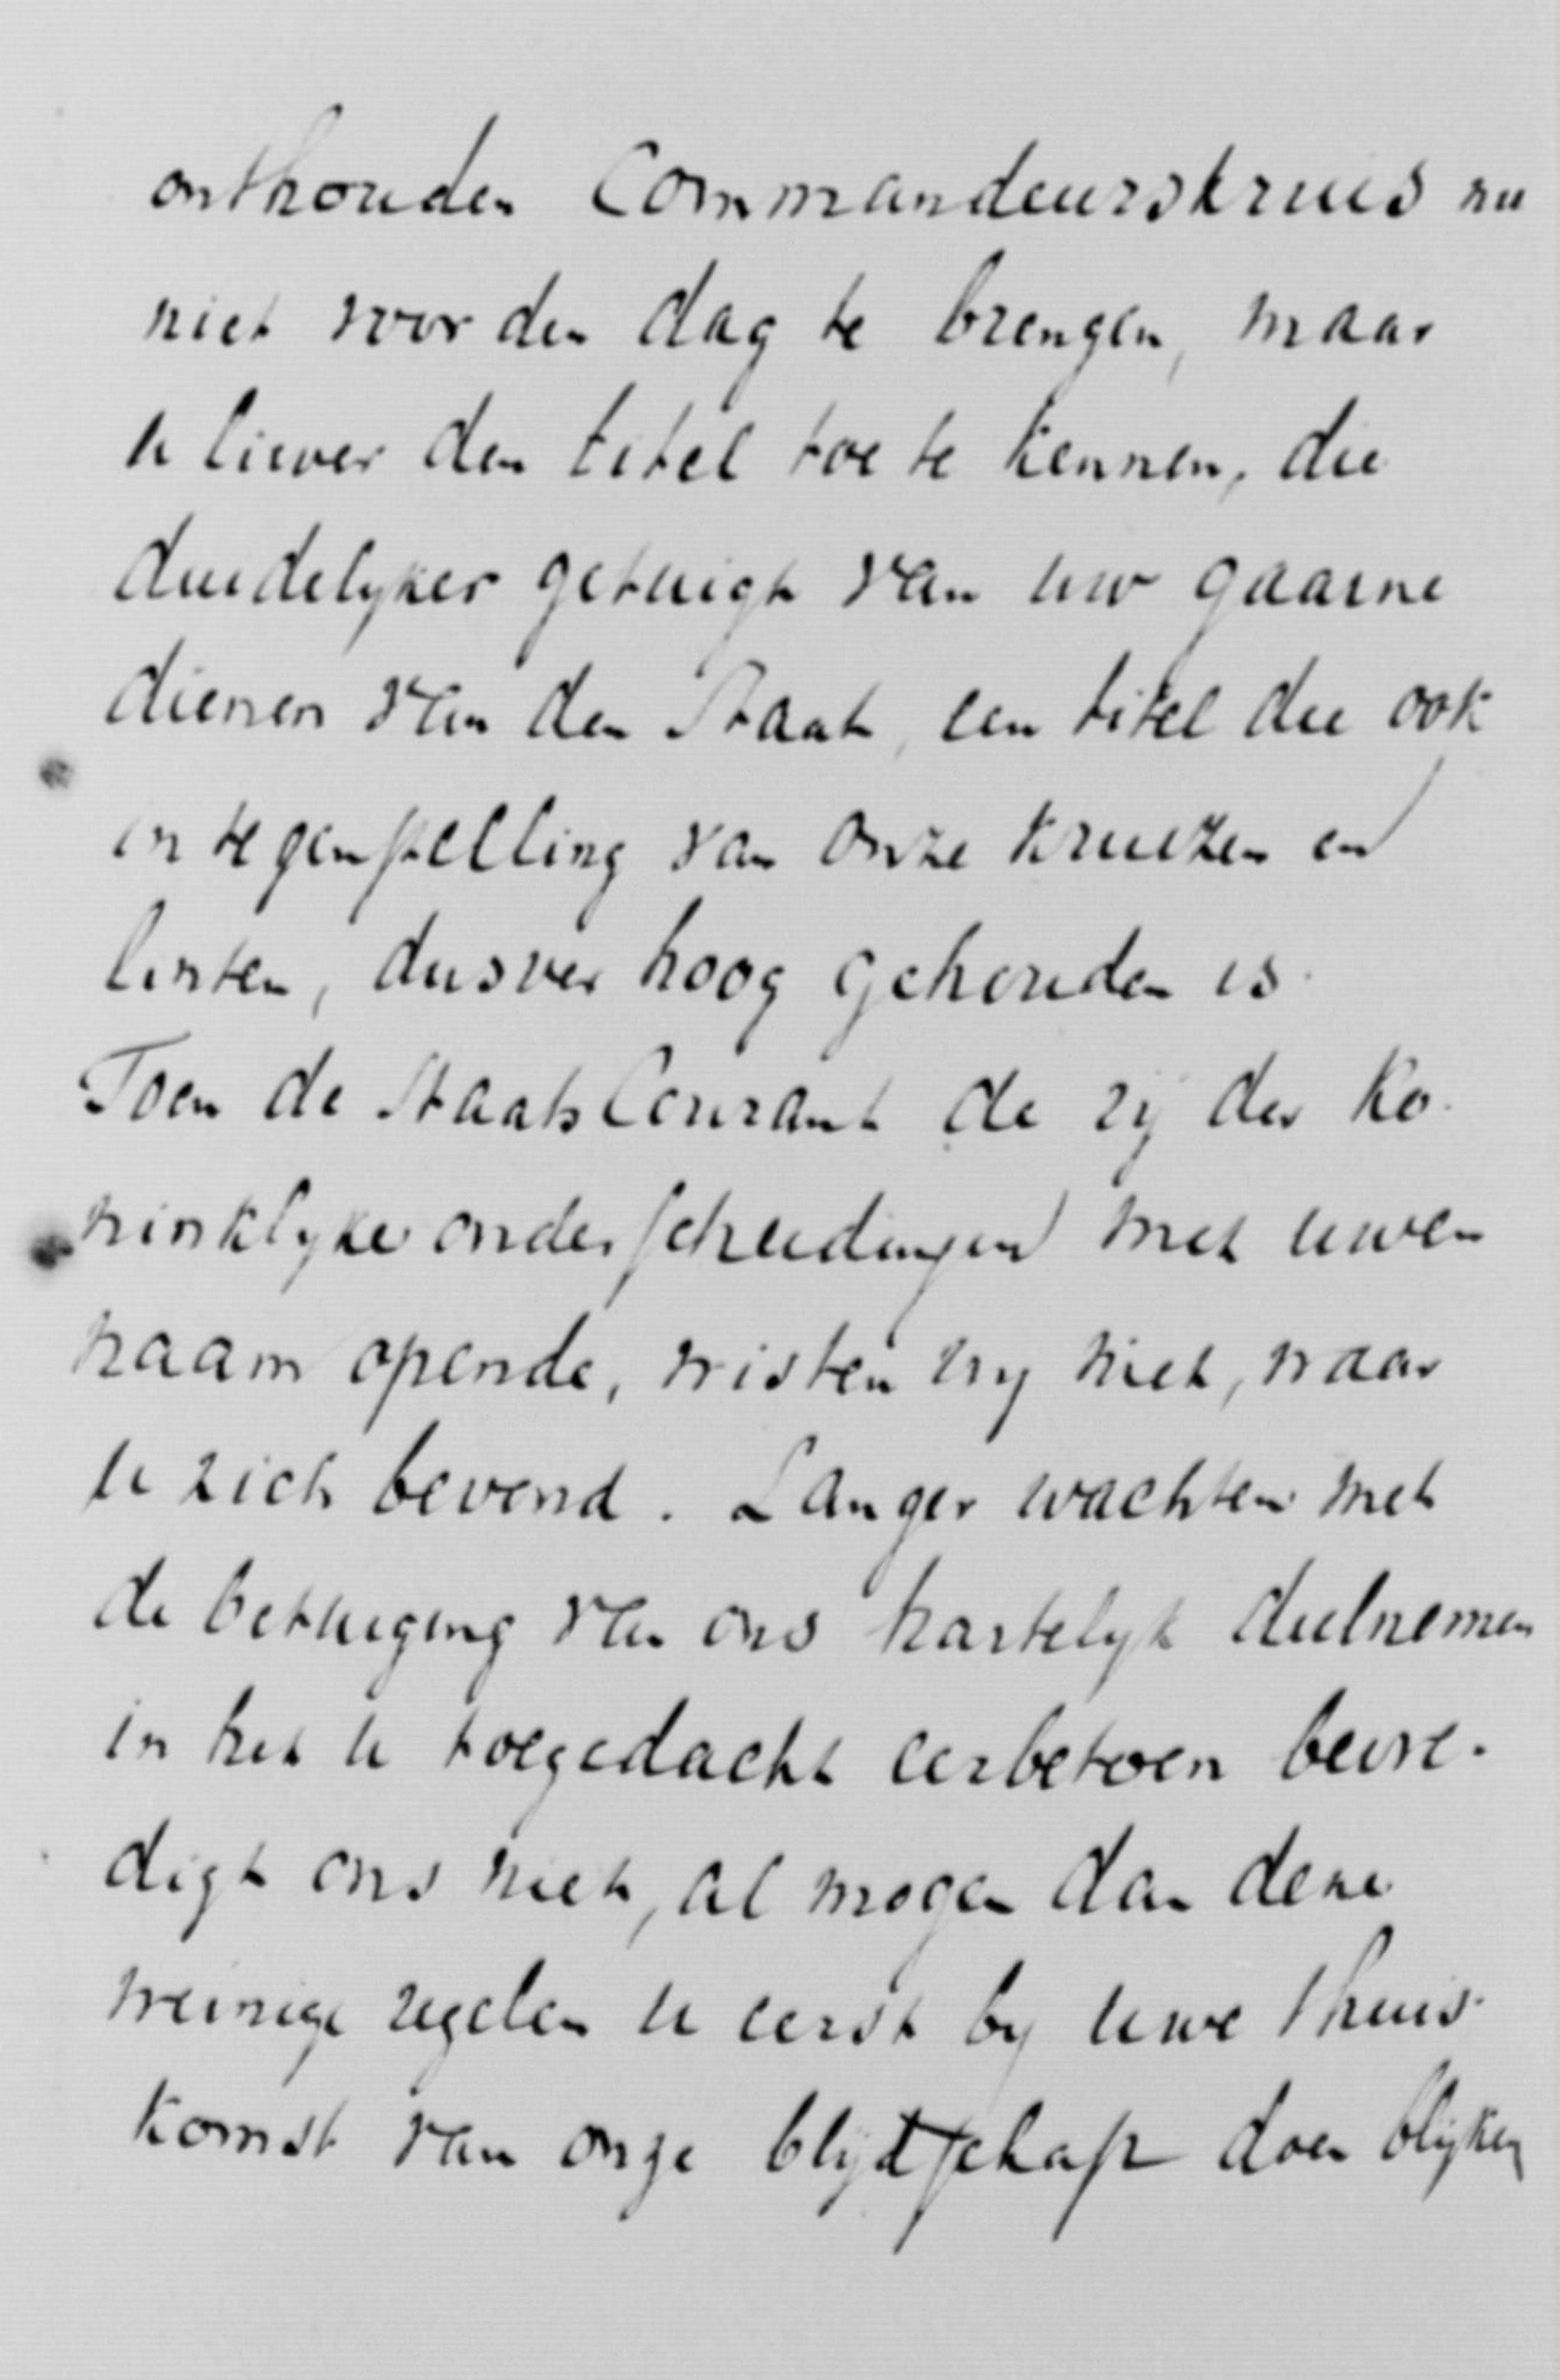 onthouden Commandeurskruis nu
niet voor den dag te brengen, maar
U liever den titel toe te kennen, die
duidelyker getuigt van uw gaarne
dienen van den Staat, een titel die ook
in tegenstelling van onze kruizen en
linten, dusver hoog gehouden is.
Toen de StaatsCourant de rij der Ko-
ninklyke onderscheidingen met uwen
naam opende, wisten wy niet, waar
U zich bevond. Langer wachten met
de betuiging van ons hartelyk deelnemen
in het U toegedacht eerbetoon bevre-
digt ons niet, al mogen dan deze
weinige regelen U eerst by uwe thuis-
komst van onze blijdschap doen blijken